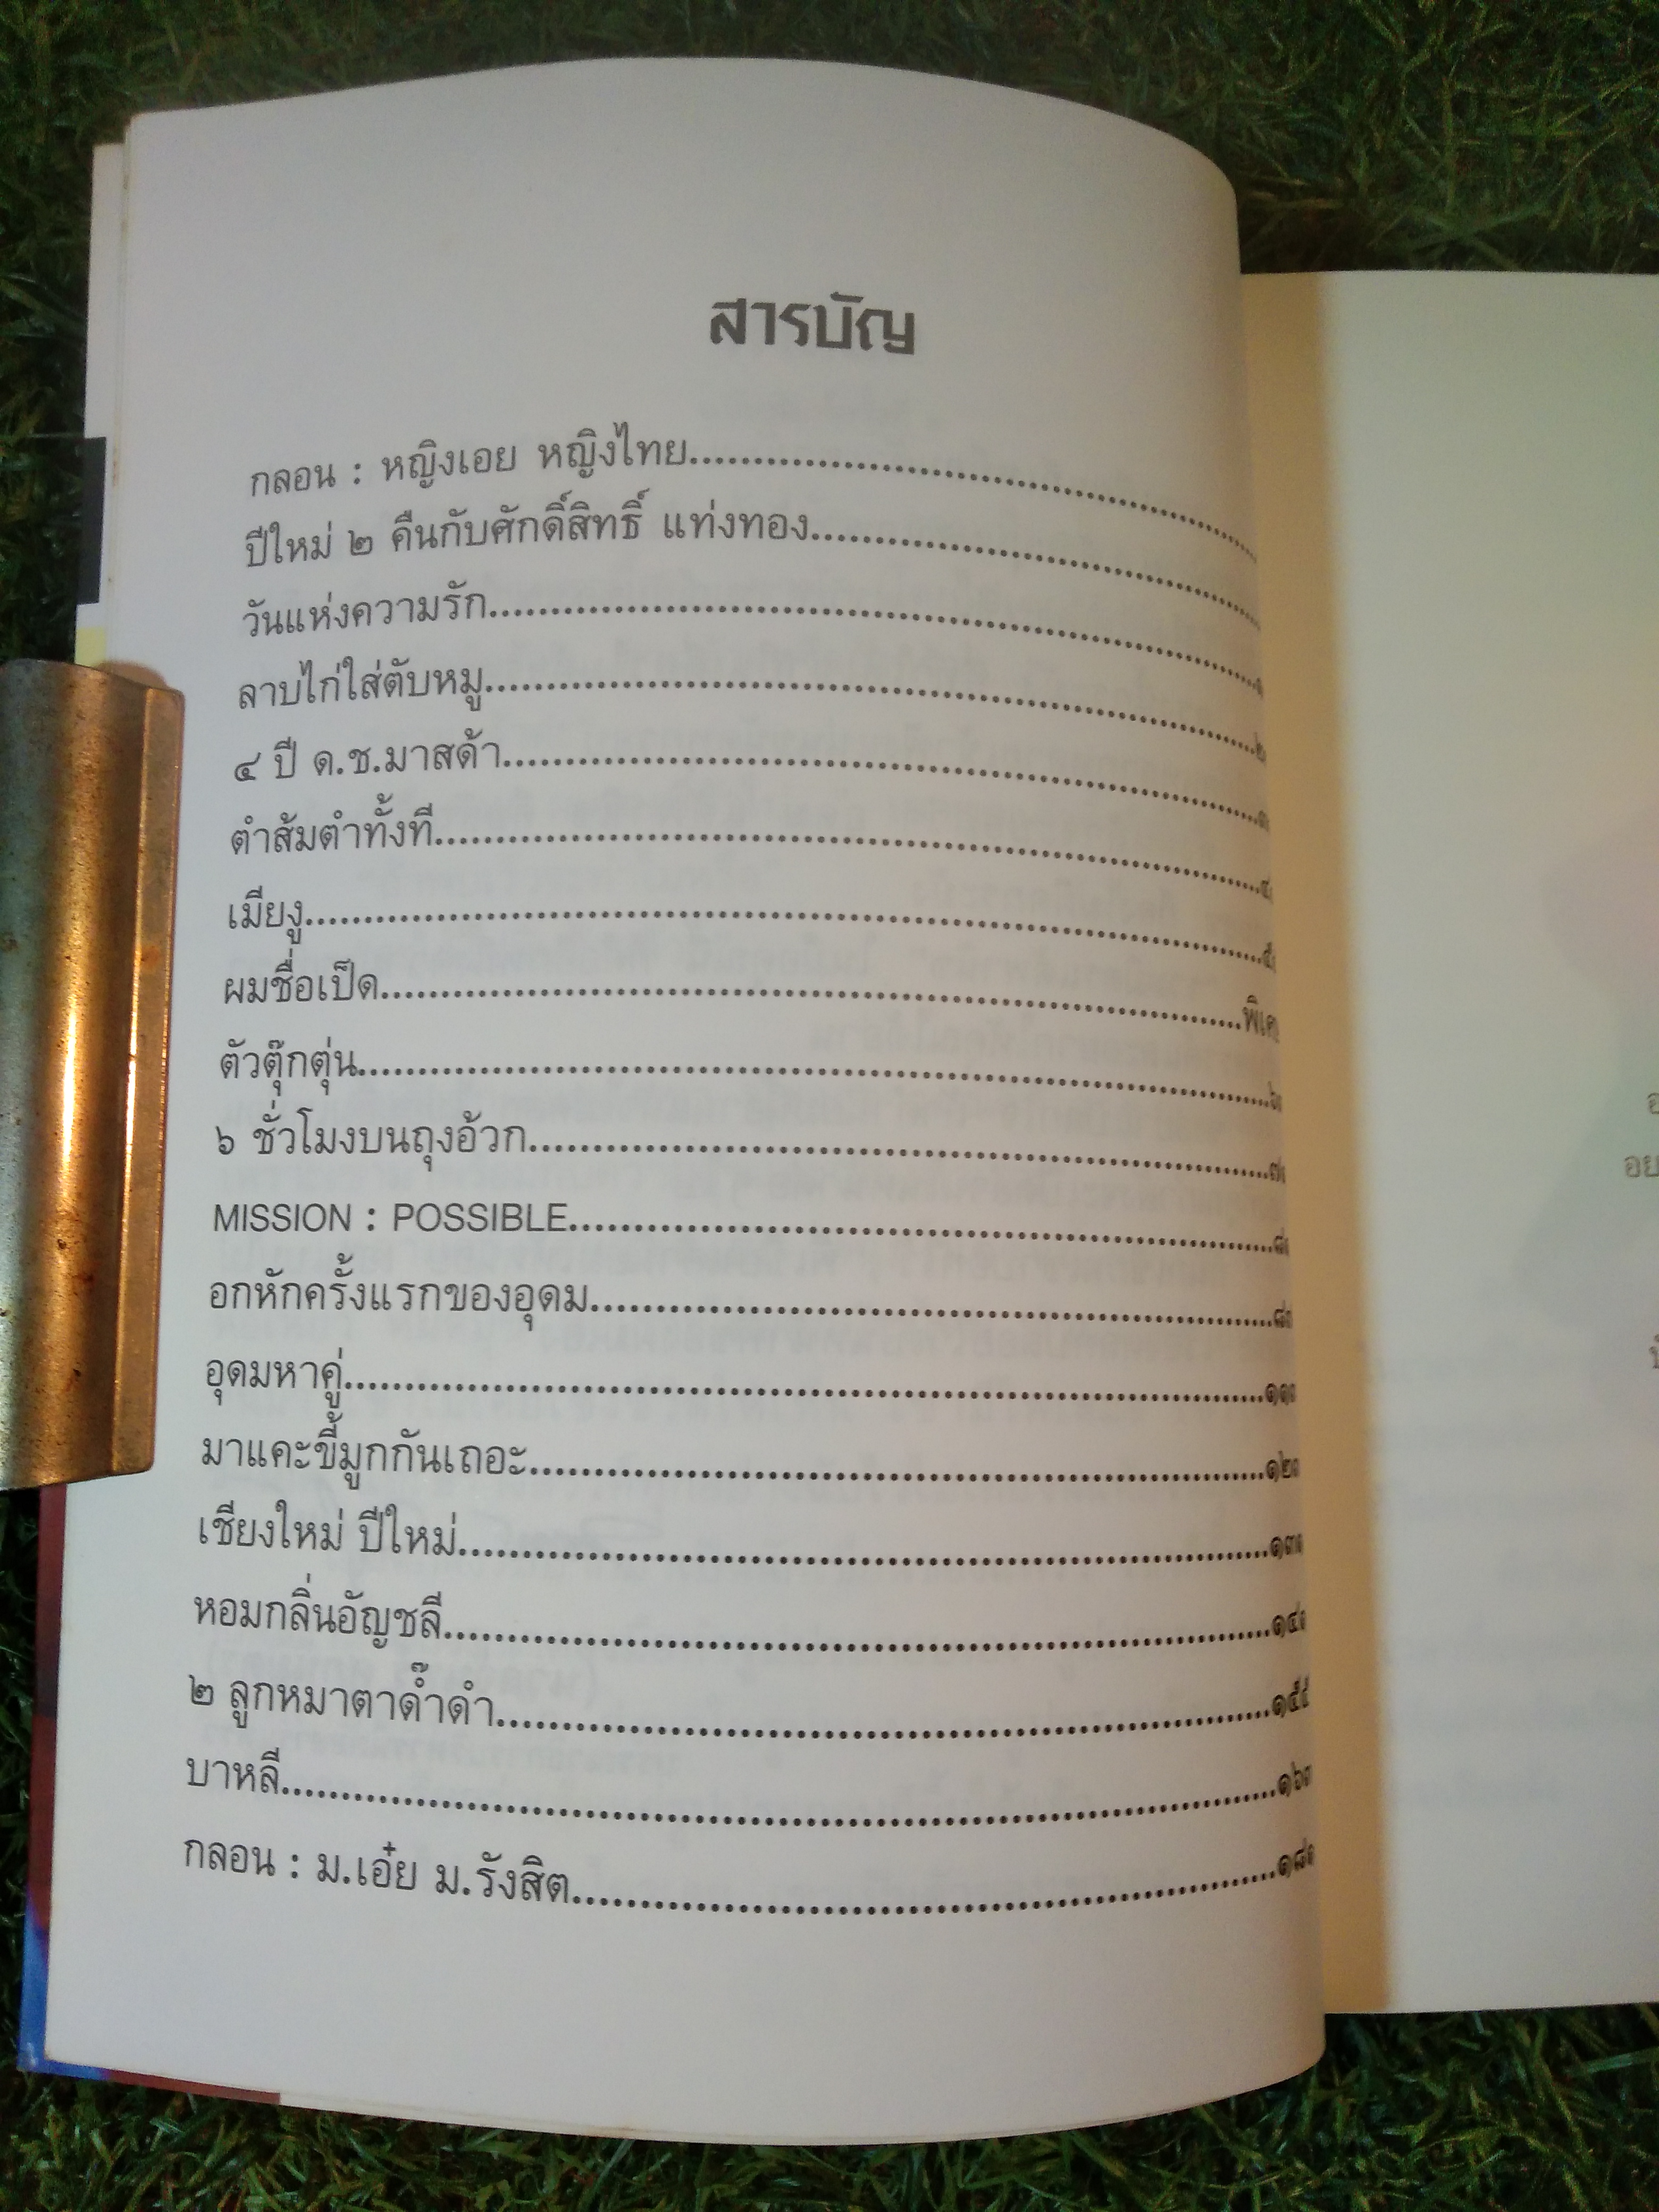 สารบัญ
กลอน : หญิงเอย หญิงไทย
ปีใหม่ ๒ คืนกับศักดิ์สิทธิ์ แท่งทอง
วันแห่งความรัก
ลาบไก่ใส่ตับหมู
๔ ปี ด.ช.มาสด้า
ตำส้มตำทั้งที
เมียงู
ผมชื่อเป็ด
ตัวตุ๊กตุ่น
๖ ชั่วโมงบนถุงอ้วก
MISSION : POSSIBLE
อกหักครั้งแรกของอุดม
อุดมหาคู่
มาแคะขี้มูกกันเถอะ
เชียงใหม่ ปีใหม่
หอมกลิ่นอัญชลี
๒ ลูกหมาตาด๊ำดำ
บาหลี
กลอน : ม.เอ๋ย ม.รังสิต